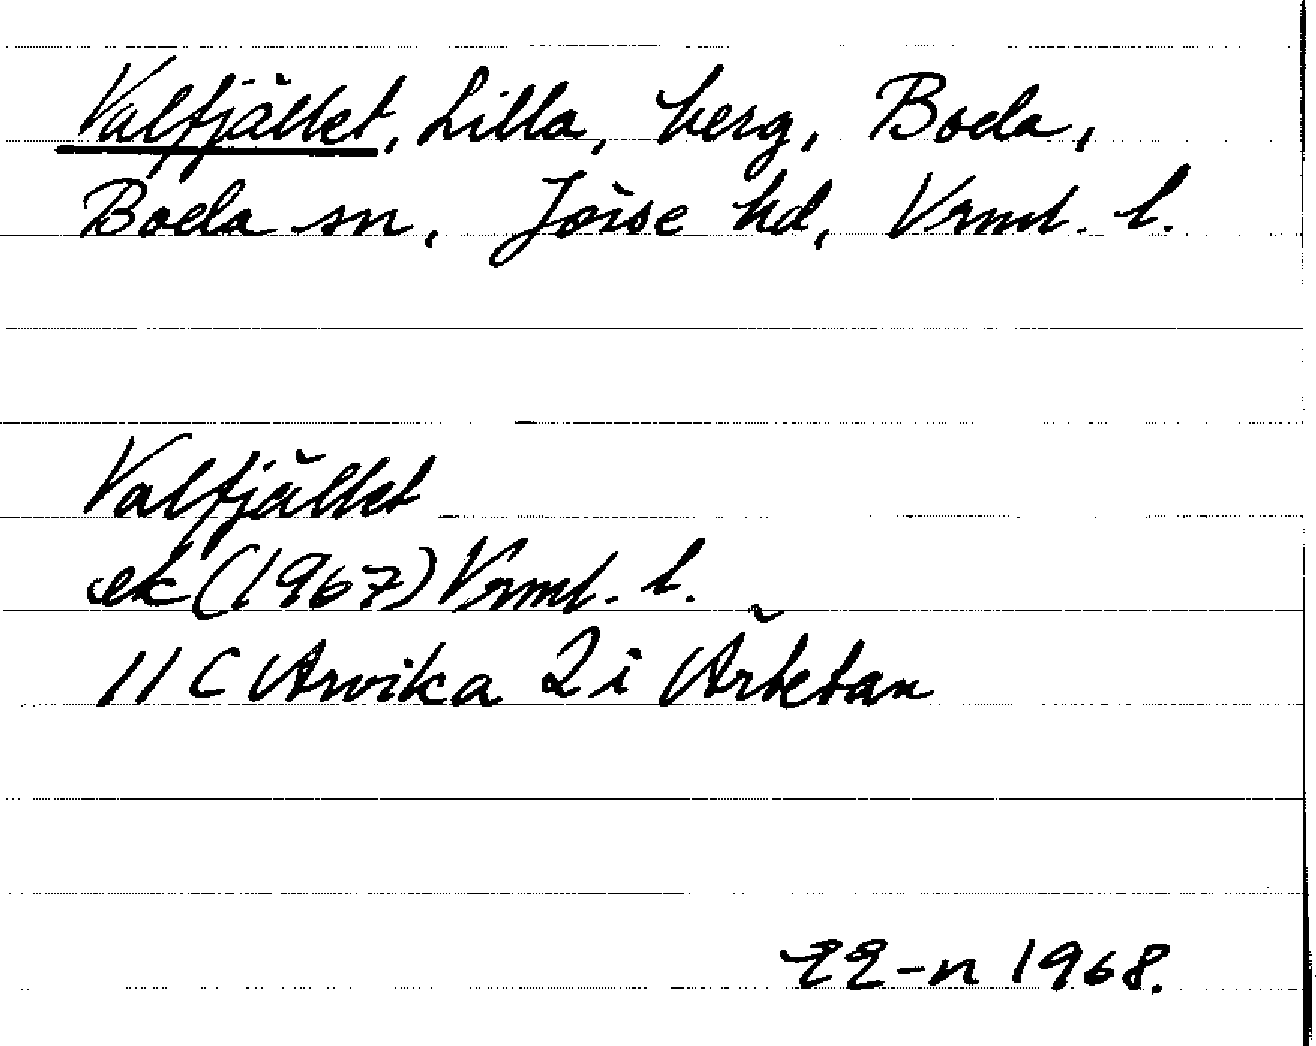 Valfjället, Lilla, berg, Boda,
Boda sn, Jösse hd, Vrml. l.
Valfjället
ek (1967) Vrml. l.
11 C Arvika 2 i Årbotan
EE-n 1968.